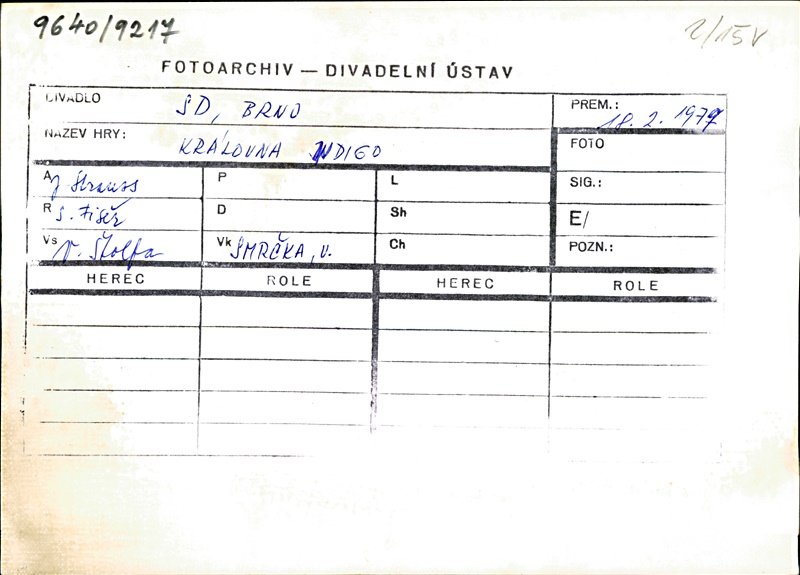 9640/9217
2/15V
FOTOARCHIV — DIVADELNÍ ÚSTAV
DIVADLO SD, BRNO
PREM.: 18. 2. 1977
NÁZEV HRY: KRÁLOVNA INDIGO
FOTO
A J Strauss P L SIG.:
R S. Fišer D Sh E/
Vs V. Štolfa Vk SMRČKA, V. Ch POZN.:
HEREC ROLE HEREC ROLE